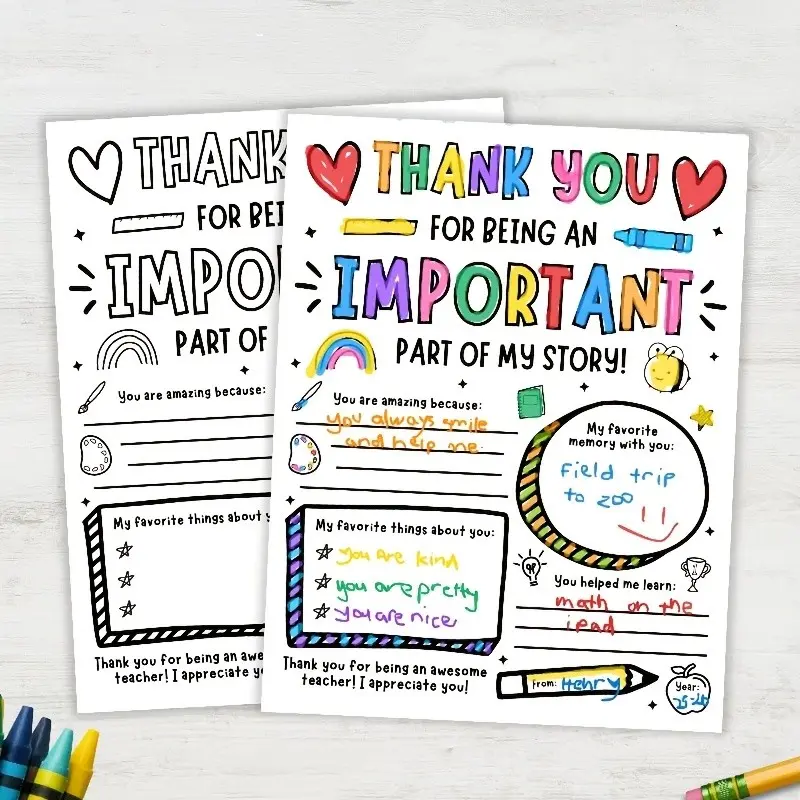 THANK
FOR BEI
IMPO
PART OF
You are amazing because:
My favorite things about y
Thank you for being an awe
teacher! I appreciate yo
THANK YOU
FOR BEING AN
IMPORTANT
PART OF MY STORY!
You are amazing because:
you always smile
and help me.
My favorite things about you:
you are kind
you are pretty
you are nice
Thank you for being an awesome
teacher! I appreciate you!
My favorite
memory with you:
Field trip
to zoo
You helped me learn:
math on the
ipad
From: Henry
Year: